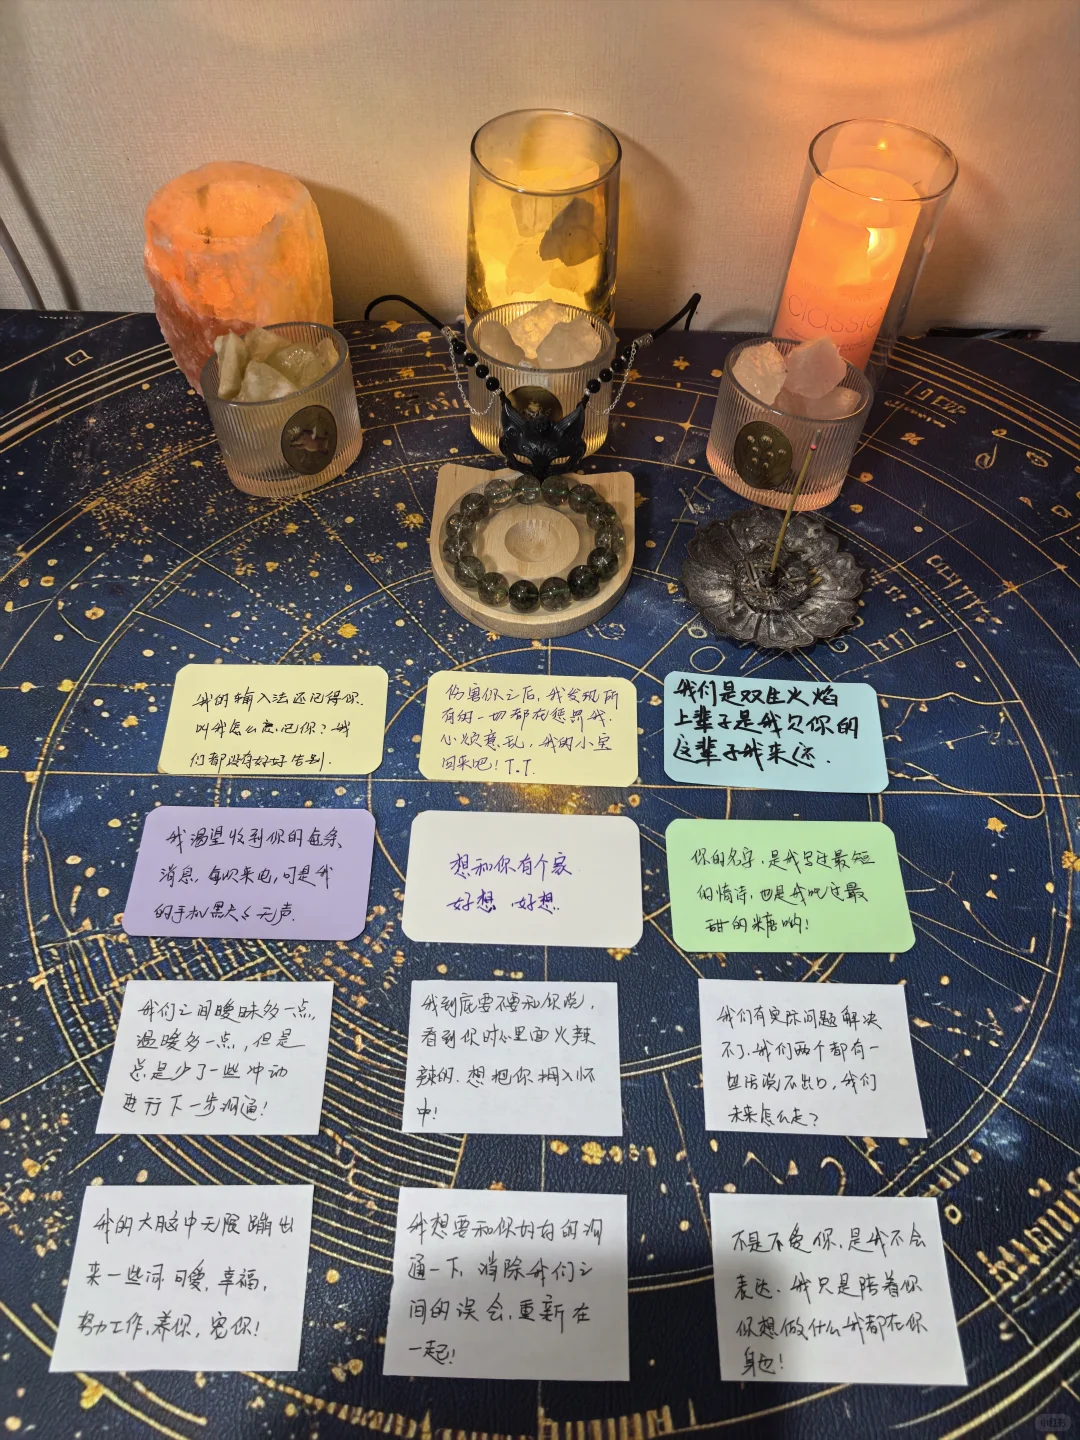 classic
我的输入法还记得你.
叫我怎么忘记你？我
们都没有好好告别.
伤害你之后,我发现所
有的一切都在惩罚我.
心烦意乱,我的小宝
回来吧！T.T.
我们是双生火焰
上辈子是我欠你的
这辈子我来还.
我渴望收到你的每条
消息,每次来电,可是我
的手机黑夜无声.
想和你有个家
好想 好想.
你的名字,是我写过最短
的情诗,也是我吃过最
甜的糖哟!
我们之间暧昧多一点,
温暖多一点,但是
总是少了一些冲动
进行下一步沟通!
我到底要不要和你说,
看到你时心里面火辣
辣的.想把你拥入怀
中!
我们有实际问题解决
不了.我们两个都有一
些话说不出口,我们
未来怎么走?
我的大脑中无限蹦出
来一些词 可爱,幸福,
努力工作,养你,宠你!
我想要和你好好的沟
通一下,消除我们之
间的误会,重新在
一起!
不是不爱你,是我不会
表达.我只是陪着你
你想做什么我都在你
身边!
小红书